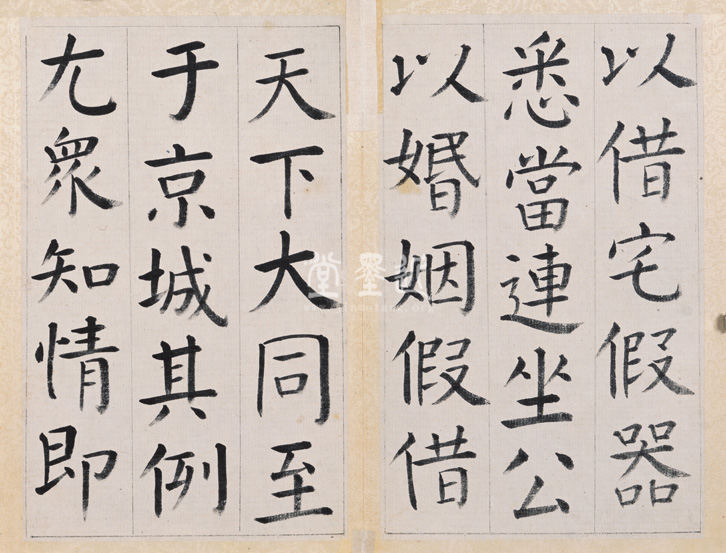 以借宅假器
悉當連坐公
以婚姻假借
天下大同至
于京城其例
尢衆知情即